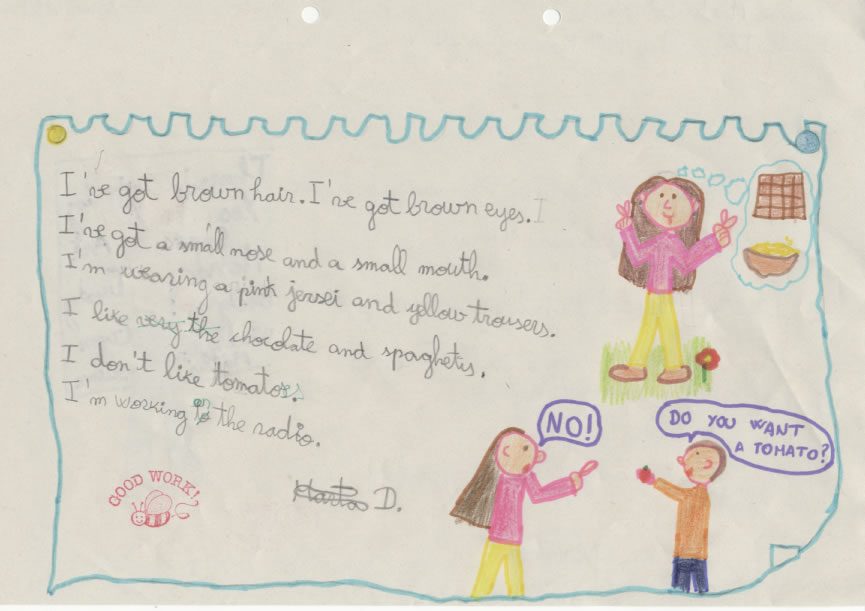 I've got brown hair. I've got brown eyes. I
I've got a small nose and a small mouth.
I'm wearing a pink jersei and yellow trousers.
I like very the chocolate and spaghetis.
I don't like tomatos.
I'm working to the radio.
D.
GOOD WORK!
NO!
DO YOU WANT
A TOMATO?